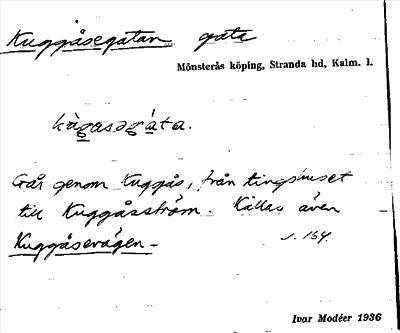 Kuggåsegatan gata
Mönsterås köping, Stranda hd, Kalm. l.
kùgasəgáta.
Går genom Kuggås, från tingshuset
till Kuggåsström. Kallas även
Kuggåsevägen –
s. 154.
Ivar Modéer 1936